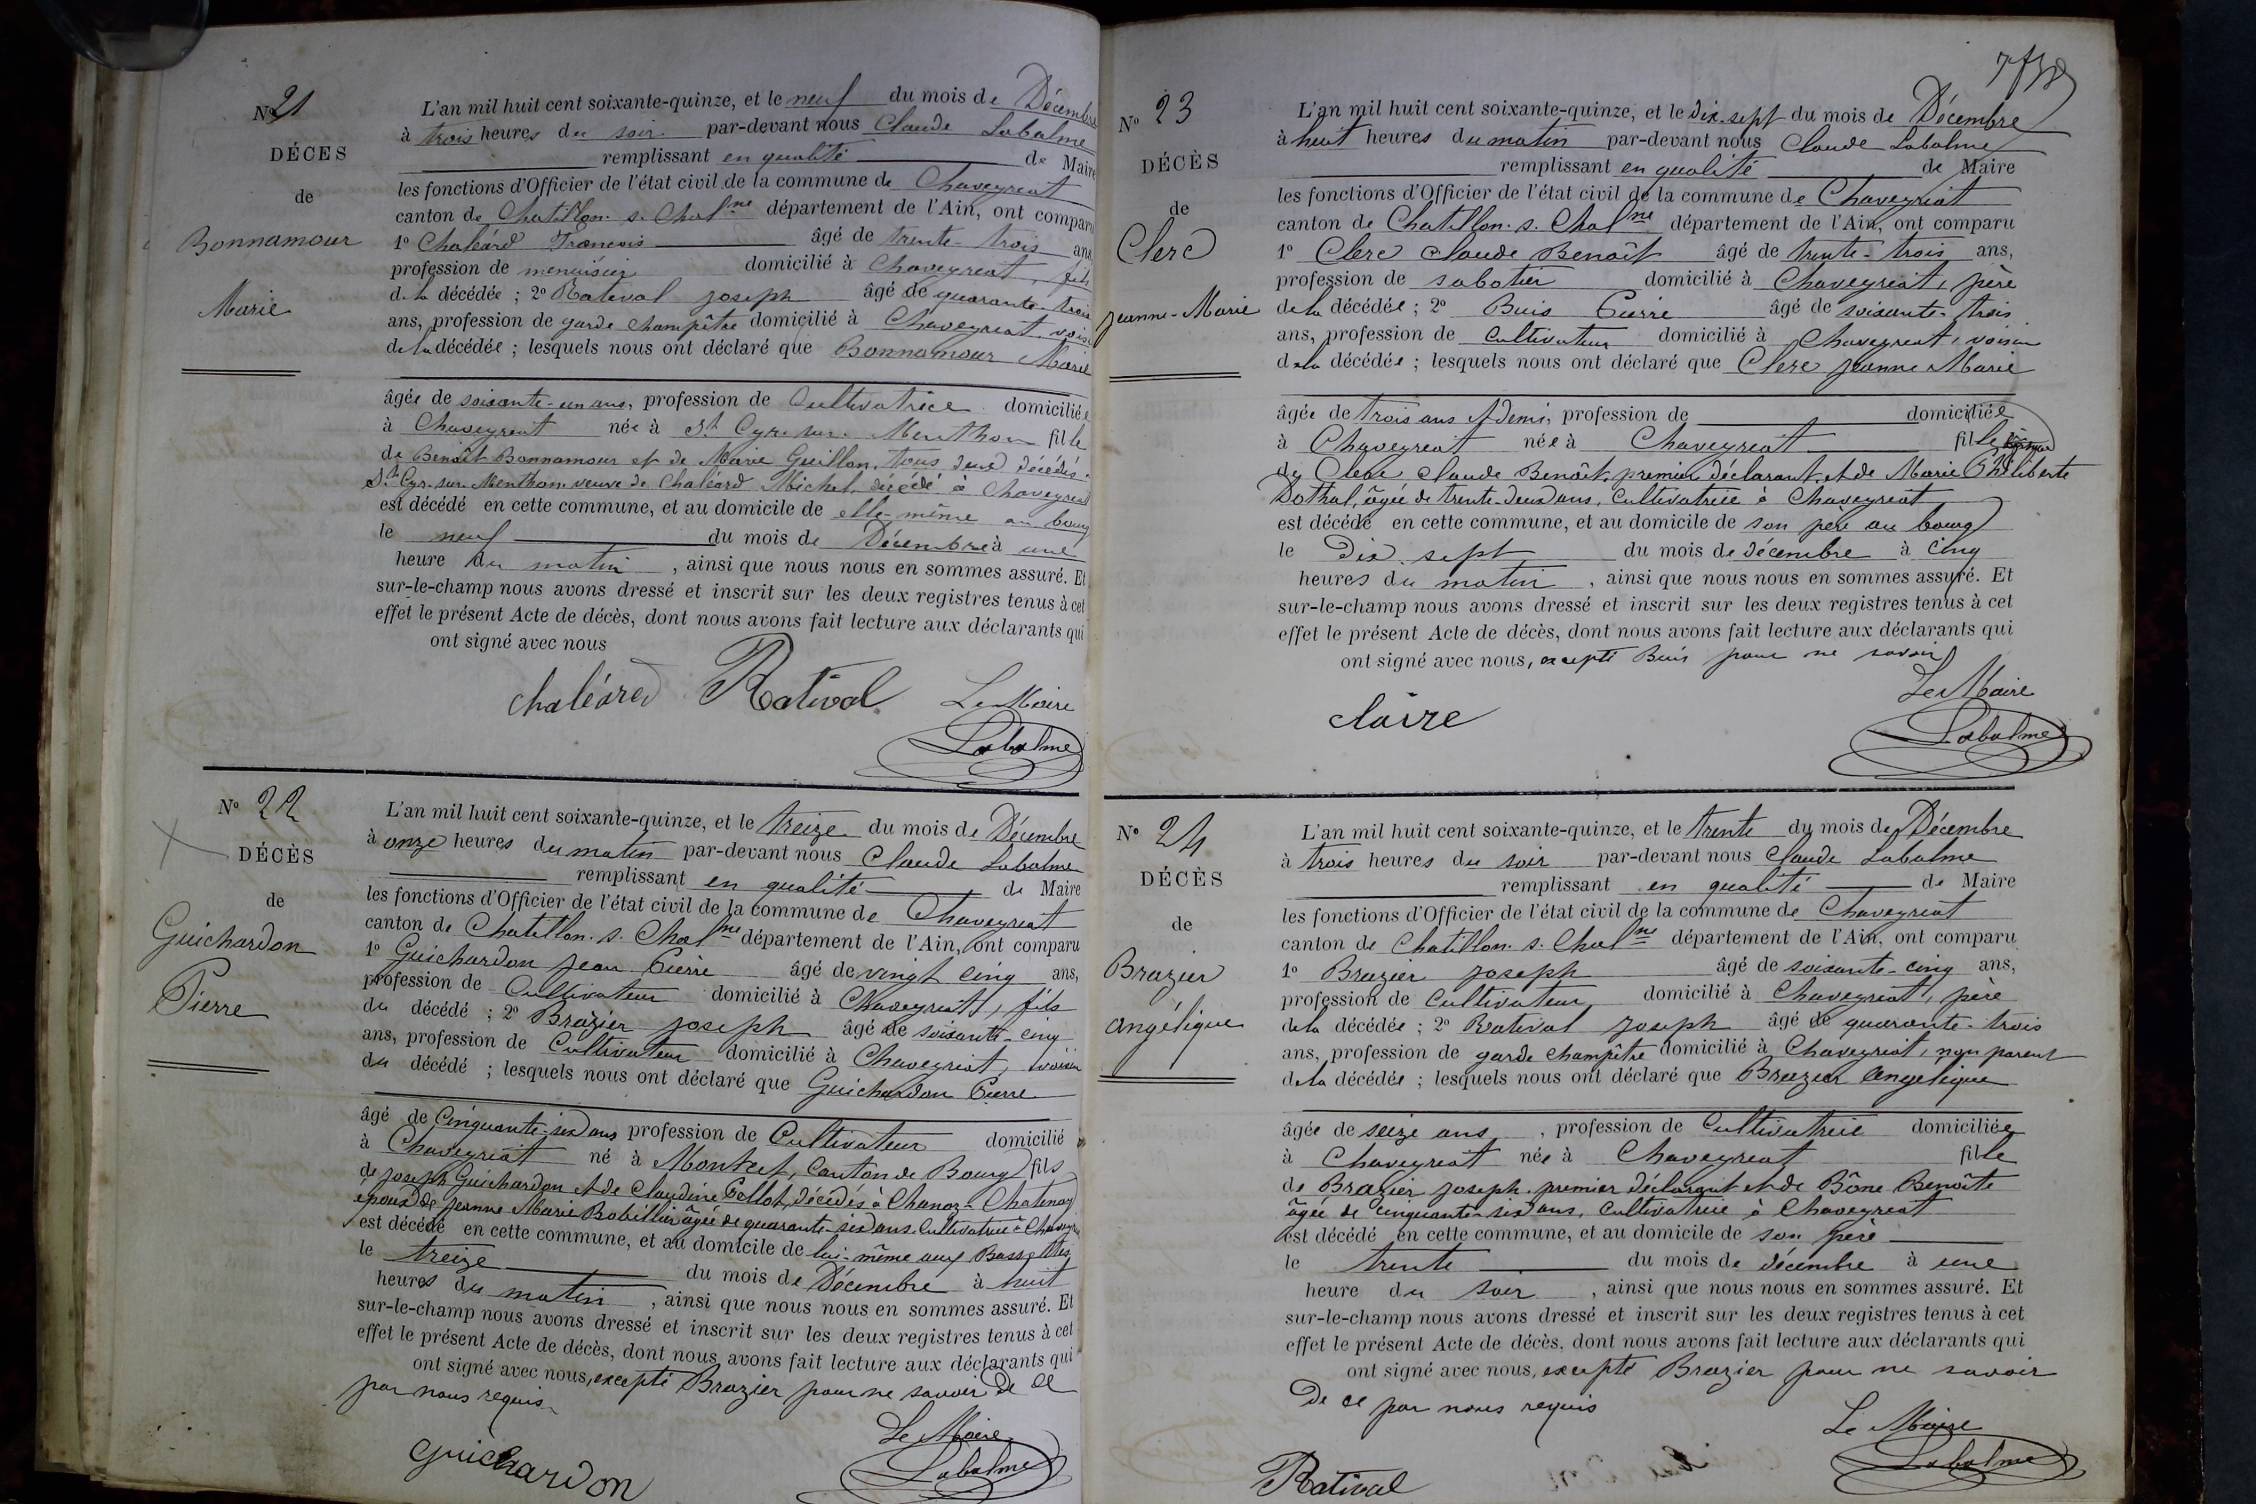 Nº 21
DÉCES
de
Bonnamour
Marie
L'an mil huit cent soixante-quinze, et le neuf du mois de Décembre
à trois heures du soir par-devant nous Claude Labalme
remplissant en qualité de Maire
les fonctions d'Officier de l'état civil de la commune de Chaveyriat
canton de Chatillon. s. Chalne département de l'Ain, ont comparu
1º Chaléard François âgé de trente-trois ans
profession de menuisier domicilié à Chaveyriat, fils
de la décédée ; 2º Ratival joseph âgé de quarante-trois
ans, profession de garde champêtre domicilié à Chaveyriat, voisin
de la décédée ; lesquels nous ont déclaré que Bonnamour Marie
âgée de soixante-un ans, profession de Cultivatrice domiciliée
à Chaveyriat née à St Cyr-sur-Menthon fille
de Benoît Bonnamour et de Marie Guillon, tous deux décédés à
St Cyr-sur-Menthon veuve de Chaléard Michel, décédé à Chaveyriat
est décédé en cette commune, et au domicile de elle-même au bourg
le neuf du mois de Décembre à une
heure du matin, ainsi que nous nous en sommes assuré. Et
sur-le-champ nous avons dressé et inscrit sur les deux registres tenus à cet
effet le présent Acte de décès, dont nous avons fait lecture aux déclarants qui
ont signé avec nous
chaléard Ratival Le Maire
Labalme
Nº 22
DÉCÈS
de
Guichardon
Pierre
L'an mil huit cent soixante-quinze, et le treize du mois de Décembre
à onze heures du matin par-devant nous Claude Labalme
remplissant en qualité de Maire
les fonctions d'Officier de l'état civil de la commune de Chaveyriat
canton de Chatillon. s. Chalne département de l'Ain, ont comparu
1º Guichardon jean Pierre âgé de vingt cinq ans,
profession de Cultivateur domicilié à Chaveyriat, fils
du décédé ; 2º Brazier joseph âgé de soixante-cinq
ans, profession de Cultivateur domicilié à Chaveyriat, voisin
du décédé ; lesquels nous ont déclaré que Guichardon Pierre
âgé de Cinquante-six ans profession de Cultivateur domicilié
à Chaveyriat né à Montcet, Canton de Bourg fils
de joseph Guichardon et de Claudine Pellot, décédés à Chanoz-Chatenay
époux de jeanne Marie Bobillier âgée de quarante-six ans. Cultivatrice à Chaveyriat
est décédé en cette commune, et au domicile de lui-même aux
le treize du mois de Décembre à huit
heures du matin, ainsi que nous nous en sommes assuré. Et
sur-le-champ nous avons dressé et inscrit sur les deux registres tenus à cet
effet le présent Acte de décès, dont nous avons fait lecture aux déclarants qui
ont signé avec nous, excepté Brazier pour ne savoir de ce
par nous requis
Guichardon
Le Maire
Labalme
Nº 23
DÉCÈS
de
Clerc
jeanne-Marie
L'an mil huit cent soixante-quinze, et le dix-sept du mois de Décembre
à huit heures du matin par-devant nous Claude Labalme
remplissant en qualité de Maire
les fonctions d'Officier de l'état civil de la commune de Chaveyriat
canton de Chatillon. s. Chalne département de l'Ain, ont comparu
1º Clerc claude Benoît âgé de trente-trois ans,
profession de sabotier domicilié à Chaveyriat, père
de la décédée ; 2º Buis Pierre âgé de soixante-trois
ans, profession de Cultivateur domicilié à Chaveyriat, voisin
de la décédée ; lesquels nous ont déclaré que Clerc jeanne Marie
âgée de trois ans et demi, profession de domiciliée
à Chaveyriat née à Chaveyriat fille
de Clerc claude Benoît, premier déclarant, et de Marie Philiberte
Dothal, âgée de trente-deux ans, Cultivatrice à Chaveyriat
est décédé en cette commune, et au domicile de son père au bourg
le dix sept du mois de décembre à cinq
heures du matin, ainsi que nous nous en sommes assuré. Et
sur-le-champ nous avons dressé et inscrit sur les deux registres tenus à cet
effet le présent Acte de décès, dont nous avons fait lecture aux déclarants qui
ont signé avec nous, excepté Buis pour ne savoir
Le Maire
claire
Labalme
Nº 24
DÉCÈS
de
Brazier
angélique
L'an mil huit cent soixante-quinze, et le trente du mois de Décembre
à trois heures du soir par-devant nous Claude Labalme
remplissant en qualité de Maire
les fonctions d'Officier de l'état civil de la commune de Chaveyriat
canton de Chatillon. s. Chalne département de l'Ain, ont comparu
1º Brazier joseph âgé de soixante-cinq ans,
profession de Cultivateur domicilié à Chaveyriat, père
de la décédée ; 2º Ratival joseph âgé de quarante-trois
ans, profession de garde champêtre domicilié à Chaveyriat, non parent
de la décédée ; lesquels nous ont déclaré que Brazier angélique
âgée de seize ans, profession de Cultivatrice domiciliée
à Chaveyriat née à Chaveyriat fille
de Brazier joseph premier déclarant et de Bône Benoîte
âgée de cinquante-six ans, Cultivatrice à Chaveyriat
est décédé en cette commune, et au domicile de son père
le trente du mois de décembre à une
heure du soir, ainsi que nous nous en sommes assuré. Et
sur-le-champ nous avons dressé et inscrit sur les deux registres tenus à cet
effet le présent Acte de décès, dont nous avons fait lecture aux déclarants qui
ont signé avec nous, excepté Brazier pour ne savoir
De ce par nous requis
Le Maire
Ratival
Labalme